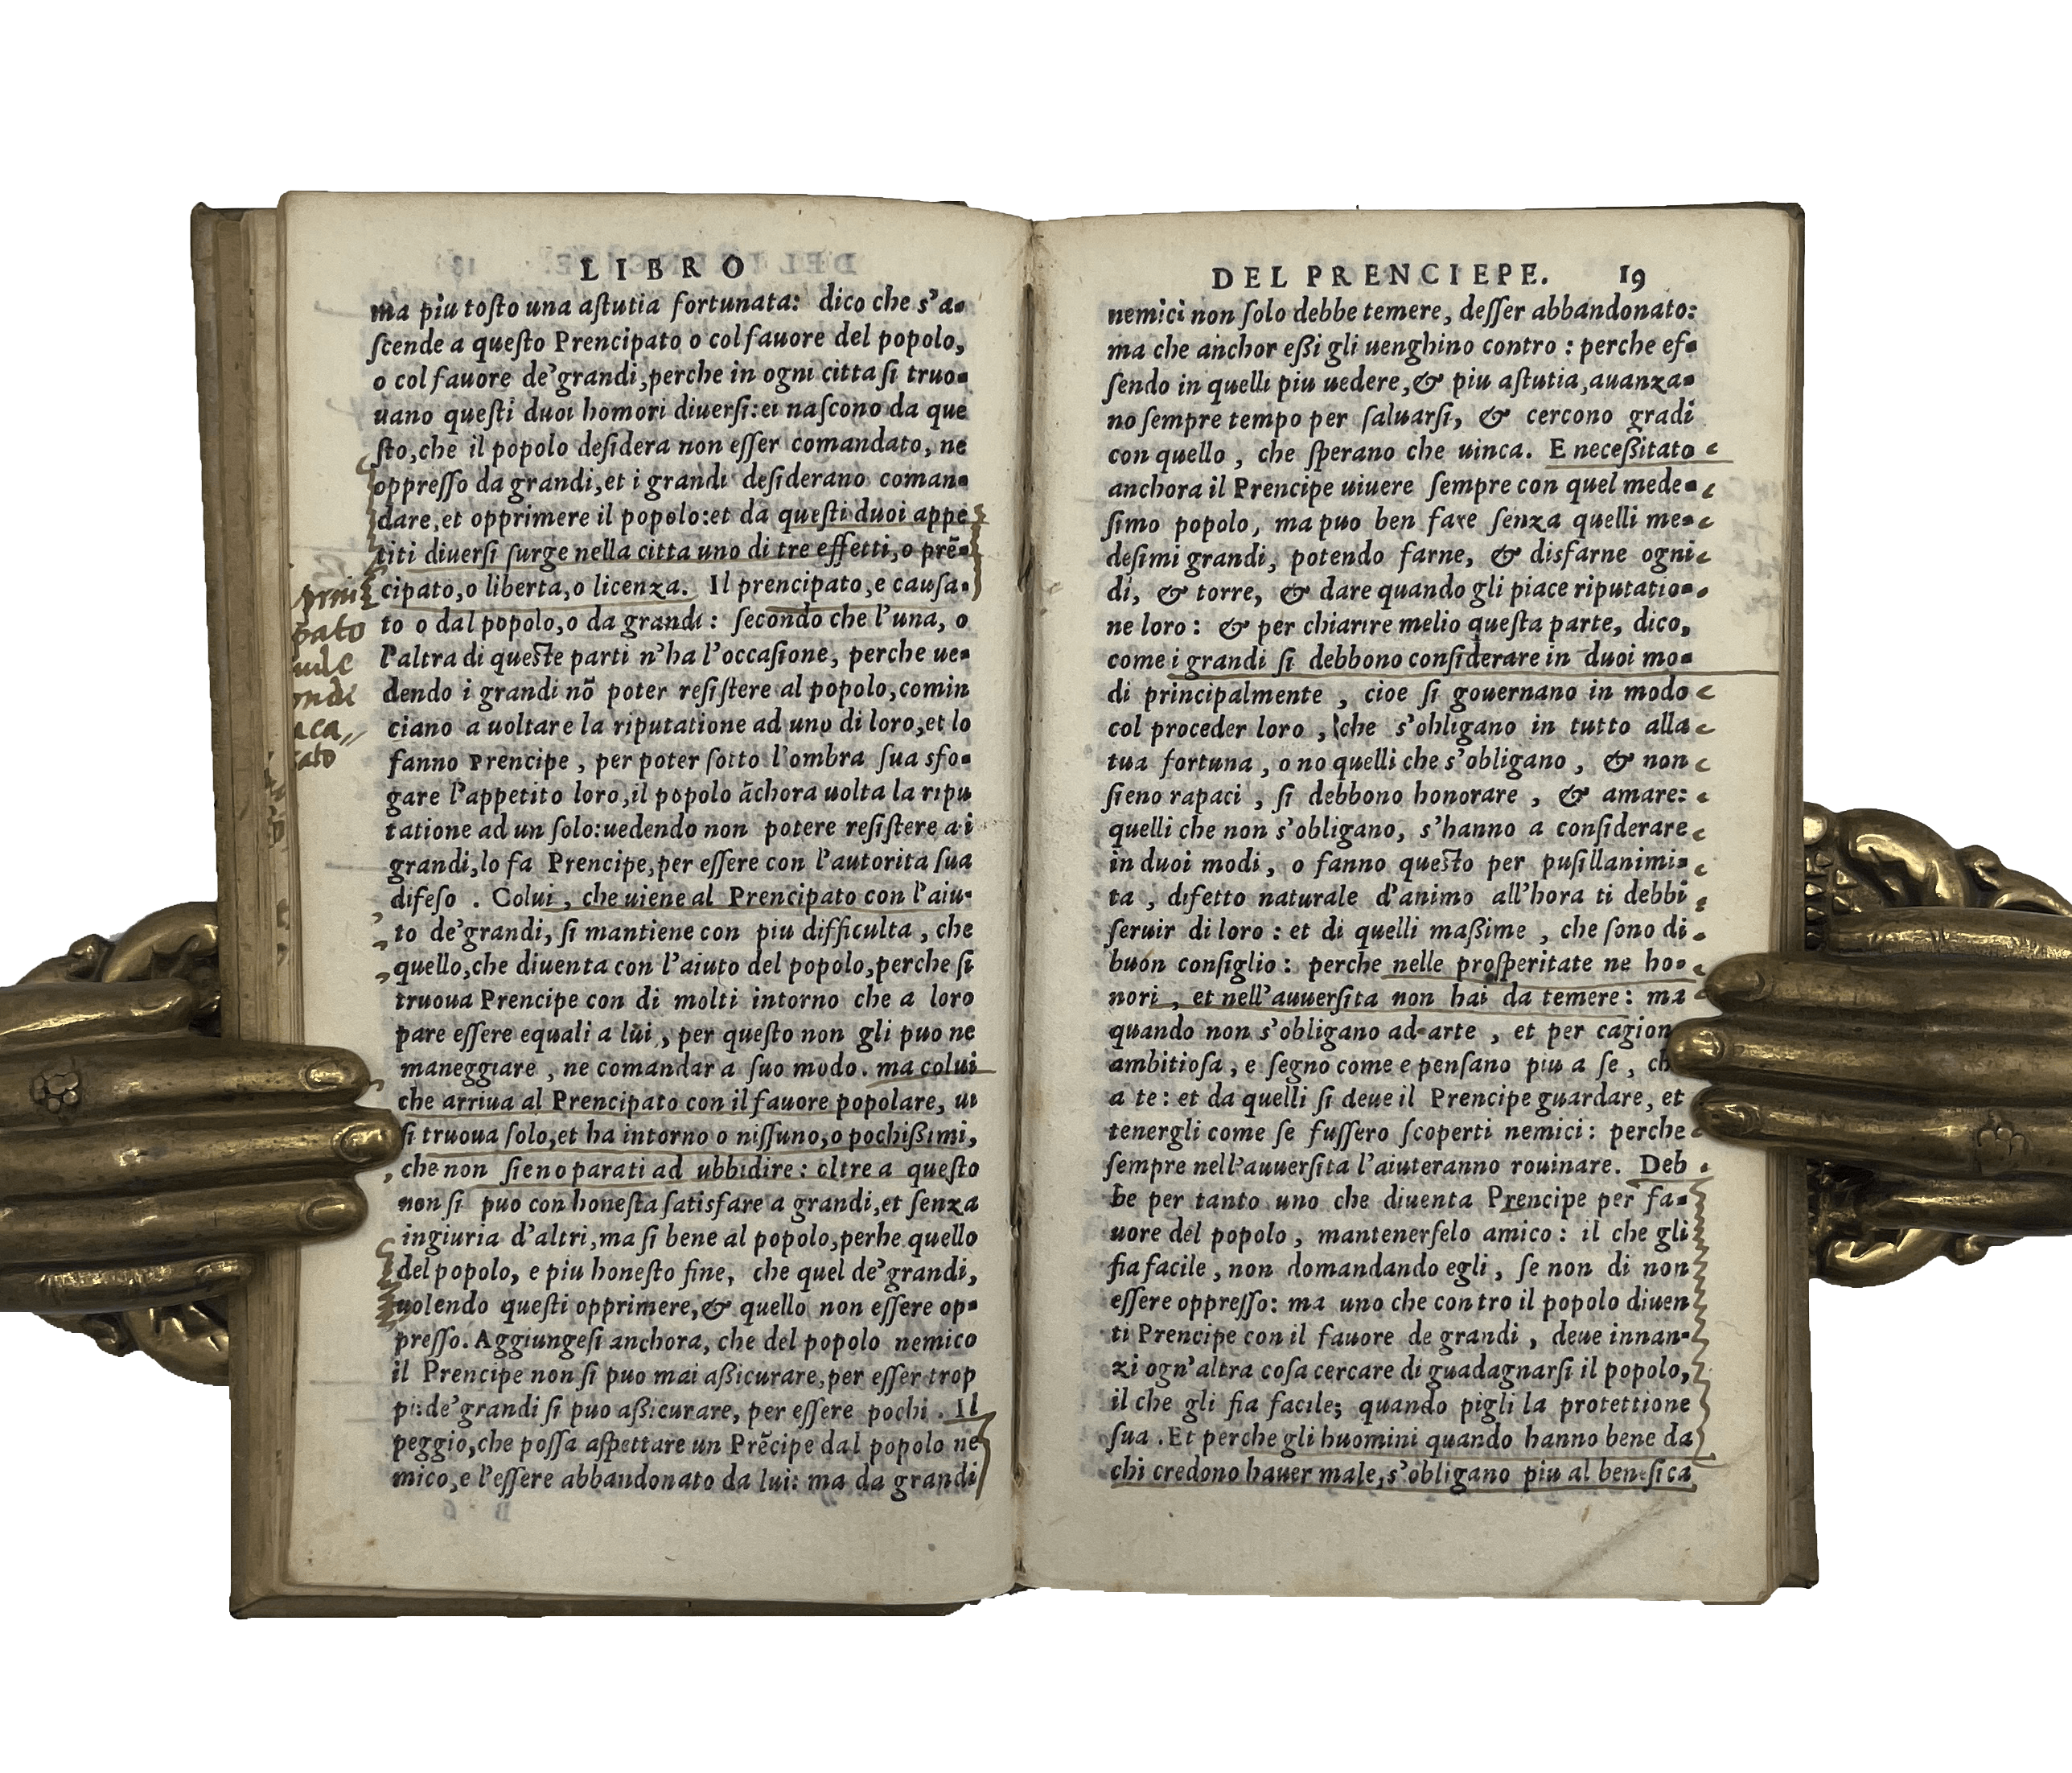 LIBRO
ma piu toſto una aſtutia fortunata: dico che s'a-
ſcende a queſto Prencipato o col fauore del popolo,
o col fauore de'grandi, perche in ogni citta ſi truo-
uano queſti duoi homori diuerſi: ei naſcono da que
ſto, che il popolo deſidera non eſſer comandato, ne
oppreſſo da grandi, et i grandi deſiderano coman-
dare, et opprimere il popolo: et da queſti duoi appe
titi diuerſi ſurge nella citta uno di tre effetti, o prē-
cipato, o liberta, o licenza. Il prencipato, e cauſa-
to o dal popolo, o da grandi: ſecondo che l'una, o
l'altra di queſte parti n'ha l'occaſione, perche ue-
dendo i grandi nō poter reſiſtere al popolo, comin
ciano a uoltare la riputatione ad uno di loro, et lo
fanno Prencipe, per poter ſotto l'ombra ſua sfo-
gare l'appetito loro, il popolo āchora uolta la ripu
tatione ad un ſolo: uedendo non potere reſiſtere a i
grandi, lo fa Prencipe, per eſſere con l'autorita ſua
difeſo. Colui, che uiene al Prencipato con l'aiu-
to de'grandi, ſi mantiene con piu difficulta, che
quello, che diuenta con l'aiuto del popolo, perche ſi
truoua Prencipe con di molti intorno che a loro
pare eſſere equali a lui, per queſto non gli puo ne
maneggiare, ne comandar a ſuo modo. ma colui
che arriua al Prencipato con il fauore popolare, ui
ſi truoua ſolo, et ha intorno o niſſuno, o pochißimi,
che non ſieno parati ad ubbidire: oltre a queſto
non ſi puo con honeſta ſatisfare a grandi, et ſenza
ingiuria d'altri, ma ſi bene al popolo, perhe quello
del popolo, e piu honeſto fine, che quel de'grandi,
uolendo queſti opprimere, & quello non eſſere op-
preſſo. Aggiungeſi anchora, che del popolo nemico
il Prencipe non ſi puo mai aßicurare, per eſſer trop
pi: de'grandi ſi puo aßicurare, per eſſere pochi. Il
peggio, che poſſa aſpettare un Prēcipe dal popolo ne
mico, e l'eſſere abbandonato da lui: ma da grandi
pato
DEL PRENCIEPE. 19
nemici non ſolo debbe temere, deſſer abbandonato:
ma che anchor eßi gli uenghino contro: perche eſ-
ſendo in quelli piu uedere, & piu aſtutia, auanza-
no ſempre tempo per ſaluarſi, & cercono gradi
con quello, che ſperano che uinca. E neceßitato
anchora il Prencipe uiuere ſempre con quel mede-
ſimo popolo, ma puo ben fare ſenza quelli me-
deſimi grandi, potendo farne, & disfarne ogni
di, & torre, & dare quando gli piace riputatio-
ne loro: & per chiarire melio queſta parte, dico,
come i grandi ſi debbono conſiderare in duoi mo-
di principalmente, cioe ſi gouernano in modo
col proceder loro, che s'obligano in tutto alla
tua fortuna, o no quelli che s'obligano, & non
ſieno rapaci, ſi debbono honorare, & amare:
quelli che non s'obligano, s'hanno a conſiderare
in duoi modi, o fanno queſto per puſillanimi-
ta, difetto naturale d'animo all'hora ti debbi
ſeruir di loro: et di quelli maßime, che ſono di
buon conſiglio: perche nelle proſperitate ne ho-
nori, et nell'auuerſita non hai da temere: ma
quando non s'obligano ad arte, et per cagion
ambitioſa, e ſegno come e penſano piu a ſe, ch
a te: et da quelli ſi deue il Prencipe guardare, et
tenergli come ſe fuſſero ſcoperti nemici: perche
ſempre nell'auuerſita l'aiuteranno rouinare. Deb
be per tanto uno che diuenta Prencipe per fa-
uore del popolo, mantenerſelo amico: il che gli
fia facile, non domandando egli, ſe non di non
eſſere oppreſſo: ma uno che contro il popolo diuen
ti Prencipe con il fauore de grandi, deue innan-
zi ogn'altra coſa cercare di guadagnarſi il popolo,
il che gli fia facile; quando pigli la protettione
ſua. Et perche gli huomini quando hanno bene da
chi credono hauer male, s'obligano piu al beneſica